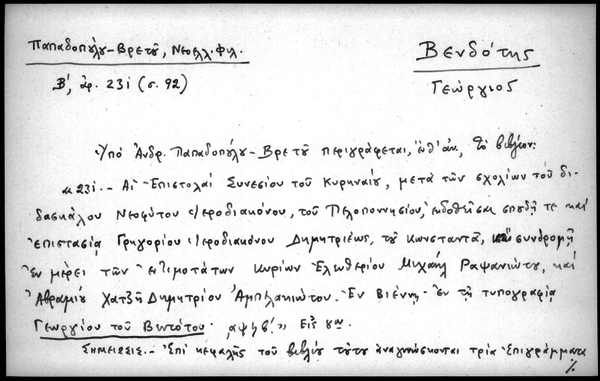 Παπαδοπούλου-Βρετοῦ, Νεοελλ. Φιλ.
Βενδότης
Β', ἀρ. 231 (σ. 92)
Γεώργιος
Ὑπὸ Ἀνδρ. Παπαδοπούλου-Βρετοῦ περιγράφεται, τὸ βιβλίον:
« 231. - Αἱ Ἐπιστολαὶ Συνεσίου τοῦ Κυρηναίου, μετὰ τῶν σχολίων τοῦ δι-
δασκάλου Νεοφύτου Ἱεροδιακόνου, τοῦ Πελοποννησίου, ἐκδοθεῖσαι σπουδῇ τε καὶ
ἐπιστασίᾳ Γρηγορίου Ἱεροδιακόνου Δημητριέως, τοῦ Κωνσταντᾶ, καὶ συνδρομῇ
ἐν μέρει τῶν ἐντιμοτάτων κυρίων Ἐλευθερίου Μιχαὴλ Ραψανιώτου, καὶ
Ἀβραμίου Χατζῆ Δημητρίου Ἀμπελακιώτου. Ἐν Βιέννῃ. Ἐν τῇ τυπογραφίᾳ
Γεωργίου τοῦ Βεντότου. ͵αψϟβ'.» Εἰς 8ον.
Σημείωσις. - Ἐπὶ κεφαλῆς τοῦ βιβλίου τούτου ἀναγινώσκονται τρία ἐπιγράμματα
./.